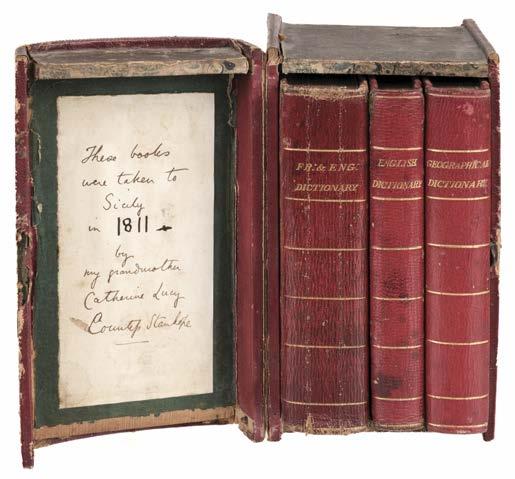 These books
were taken to
Sicily
in 1811
by
my grandmother
Catherine Lucy
Countess Stanhope
FR: & ENG:
DICTIONARY
ENGLISH
DICTIONARY
GEOGRAPHICAL
DICTIONARY